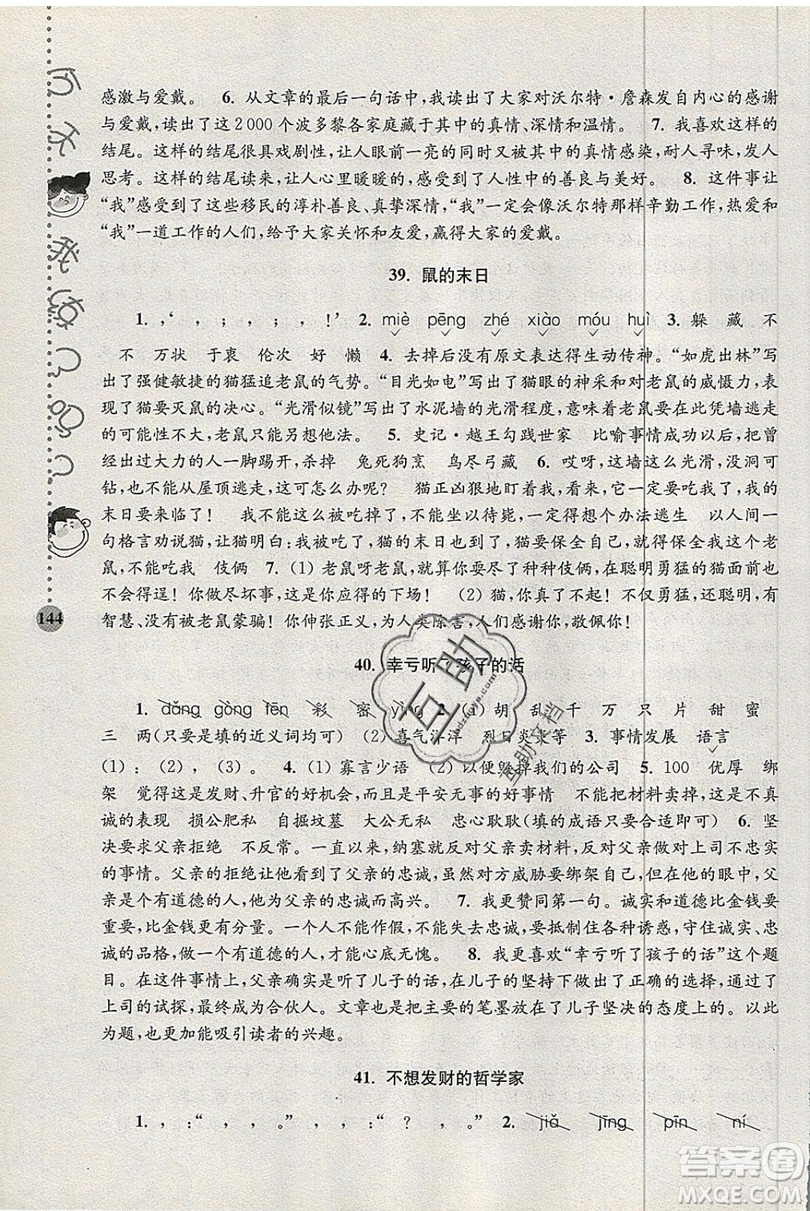 感激与爱戴。 6. 从文章的最后一句话中,我读出了大家对沃尔特·詹森发自内心的感谢
与爱戴,读出了这2000个波多黎各家庭藏于其中的真情、深情和温情。 7. 我喜欢这样的
结尾。这样的结尾很具戏剧性,让人眼前一亮的同时又被其中的真情感染,耐人寻味,发人
思考。这样的结尾读来,让人心里暖暖的,感受到了人性中的善良与美好。 8. 这件事让
“我”感受到了这些移民的淳朴善良、真挚深情,“我”一定会像沃尔特那样辛勤工作,热爱和
“我”一道工作的人们,给予大家关怀和友爱,赢得大家的爱戴。
39. 鼠的末日
1. ,‘ , ; , ; , !’ 2. miè pēng zhé xiào móu huì 3. 躲 藏 不
不 万状 于衷 伦次 好 懒 4. 去掉后没有原文表达得生动传神。“如虎出林”写
出了强健敏捷的猫猛追老鼠的气势。“目光如电”写出了猫眼的神采和对老鼠的威慑力,表
现了猫要灭鼠的决心。“光滑似镜”写出了水泥墙的光滑程度,意味着老鼠要从此凭墙逃走
的可能性不大,老鼠只能另想他法。 5. 史记·越王勾践世家 比喻事情成功以后,把曾
经出过大力的人一脚踢开,杀掉 兔死狗烹 鸟尽弓藏 6. 哎呀,这墙这么光滑,没洞可
钻,也不能从屋顶流走,怎么办呢? 猫正凶狠地盯着我,它一定要吃了我!怎么办?我的
末日要来临了! 我不能这么被吃掉了,不能坐以待毙,一定得想个办法逃生 以人间的
一句格言劝说猫,让猫明白:我的末日也是它的末日,猫要保全自己,就得保全我这个老
鼠,不能吃我 伎俩 7. (1) 老鼠呀老鼠,尽管你耍了种种伎俩,在聪明勇猛的猫面前都
不会得逞!你做尽坏事,这是你应得的下场! (2) 猫,好样的!不仅勇猛,还聪明,有
智慧、没有被老鼠蒙骗!你伸张正义,为人类除害,人们感谢你,敬佩你!
144
40. 幸亏听了孩子的话
1. dǎng gòng tēn 彩 密 yìng 2. (1) 胡 乱 千 万 只 片 甜 蜜
三 两(只要是填的近义词均可) (2) 喜气洋洋 烈日炎炎等 3. 事情发展 语言
(1) : (2) , (3) 。 4. (1) 寡言少语 (2) 以便毁掉我们的公司 5. 100 优厚 绑
架 觉得这是发财、升官的好机会,而且对平安无事的好机会 不能把材料卖掉,这是不真
诚的表现 损公肥私 自掘坟墓 大公无私 忠心耿耿(填的成语只要合适即可) 6. 坚
决要求父亲拒绝 不反常。父亲拒绝出卖材料后,纳塞甚至用威胁要绑架儿子,儿子应该
为自己的安危担心。父亲的拒绝让儿子的生命安全受到威胁却高兴,但在他的眼中,父亲
是一个有道德的人,他为父亲的忠诚而高兴。 7. 我更赞同第一句。诚实和道德比金钱更
重要,比金钱更有分量。一个人不能作假,不能失去忠诚,要抵制住各种诱惑,守住诚实、忠诚
的品格,做一个有道德的人,这样才能心底无愧。 8. 我更喜欢“幸亏听了孩子的话”这个题
目。在这件事情上,父亲确实是听了儿子的话,在儿子的坚持下做出了正确的选择,通过了
上司的试探,最终成为合伙人。文章也将主要的笔墨放在了儿子坚决的态度上的。以此
为题,也更加能吸引读者的兴趣。
41. 不想发财的哲学家
1. ,:“ , , 。” , ,:“ ? , 。” 2. jiǎ jīng pīn ní
互助
互助文档
答案圈
MXQE.COM